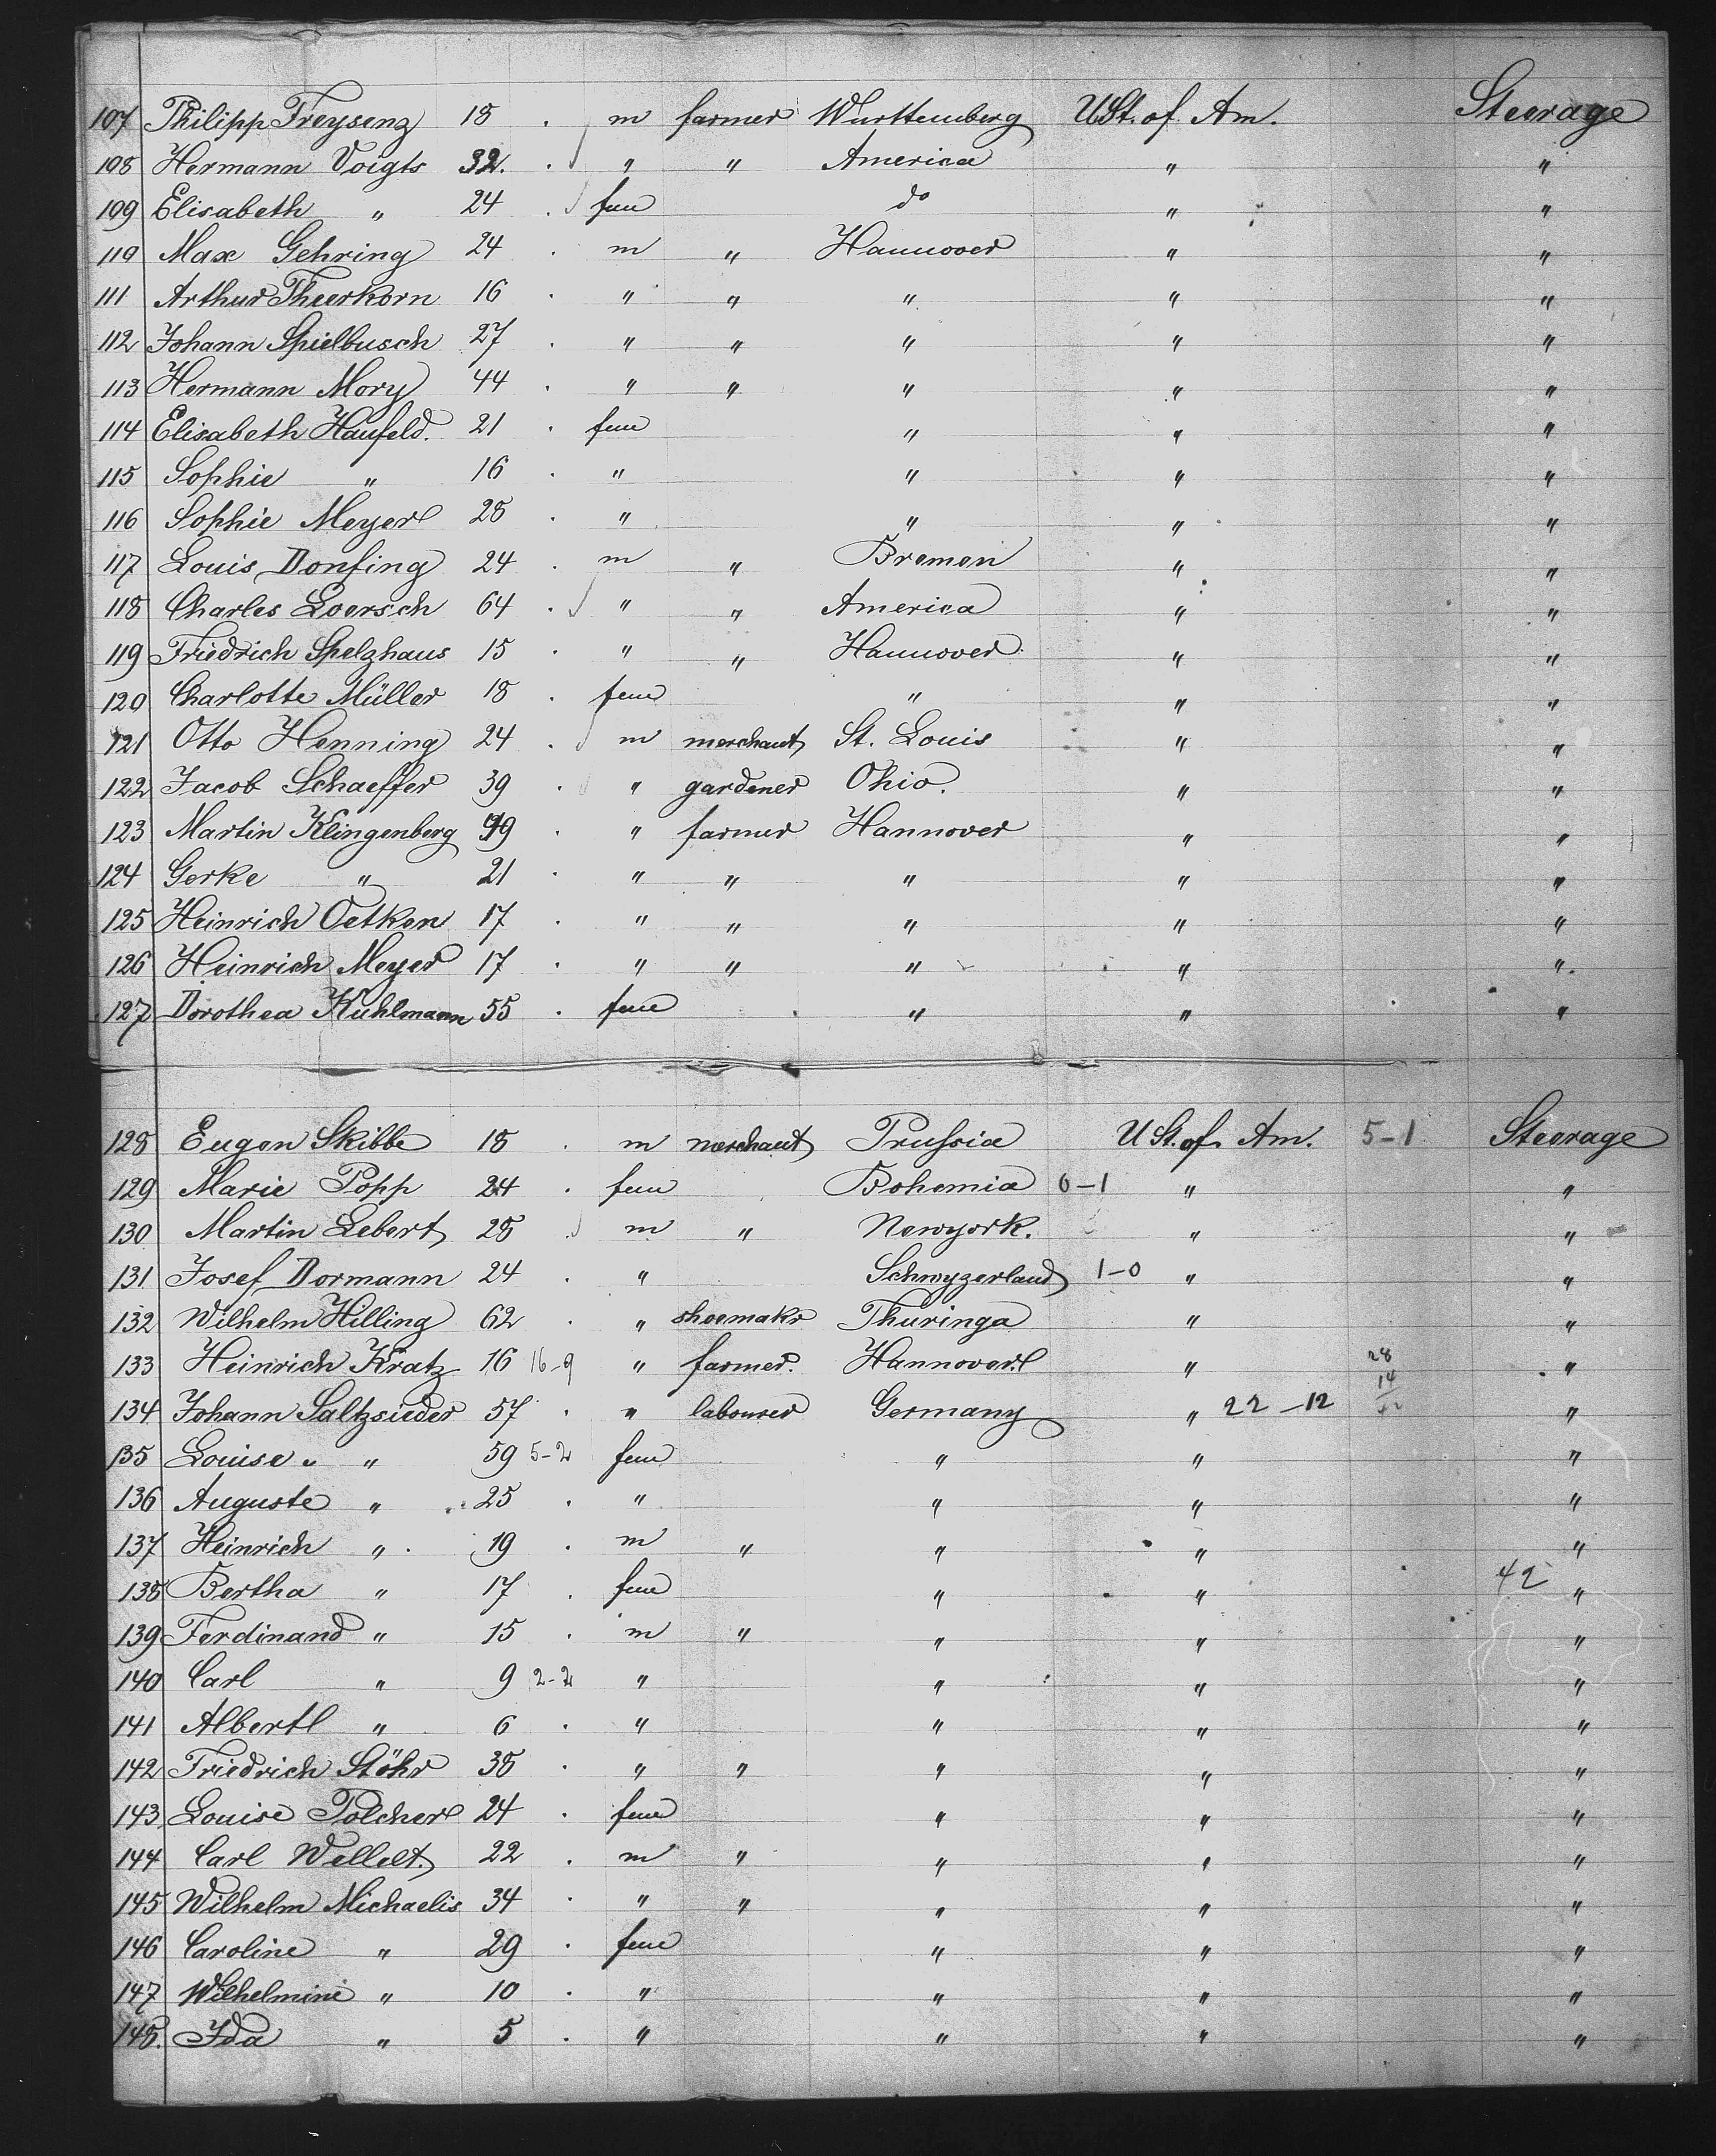 107 Philipp Freysenz 18 . m farmer Wurttemberg USt. of. Am. Steerage
108 Hermann Voigts 32. . " " America " "
109 Elisabeth " 24 . fem do " "
110 Max Gehring 24 . m " Hannover " "
111 Arthur Theerkorn 16 . " " " " "
112 Johann Spielbusch 27 . " " " " "
113 Hermann Mory 44 . " " " " "
114 Elisabeth Haufeld. 21 . fem " " "
115 Sophie " 16 . " " " "
116 Sophie Meyer 28 . " " " "
117 Louis Donfing 24 . m " Bremen " "
118 Charles Loersch 64 . " " America " "
119 Friedrich Spelzhaus 15 . " " Hannover " "
120 Charlotte Müller 18 . fem " " "
121 Otto Henning 24 . m merchant St. Louis " "
122 Jacob Schaeffer 39 . " gardener Ohio. " "
123 Martin Klingenberg . " farmer Hannover " "
124 Gerke " 21 . " " " " "
125 Heinrich Oetken 17 . " " " " "
126 Heinrich Meyer 17 . " " " " "
127 Dorothea Kuhlmann 55 . fem " " "
128 Eugen Skibbe 18 . m merchant Prussia U St. of. Am. 5-1 Steerage
129 Marie Popp 24 . fem Bohemia 0-1 " "
130 Martin Lebert 28 . m " Newyork. " "
131 Josef Dormann 24 . " Schwyzerland 1-0 " "
132 Wilhelm Hilling 62 . " shoemakr Thuringa " "
133 Heinrich Kratz 16 16-9 " farmer. Hannover " 28 "
134 Johann Saltzsieder 57 . " labourer Germany " 22-12 14 "
135 Louise " " 59 5-2 fem " " "
136 Auguste " 25 . " " " "
137 Heinrich " . 19 . m " " " "
138 Bertha " 17 . fem " " 42 "
139 Ferdinand " 15 . m " " " "
140 Carl " 9 2-2 " " " "
141 Albert " 6 . " " " "
142 Friedrich Stöhr 38 . " " " " "
143 Louise Polcher 24 . fem " " "
144 Carl Wellelt. 22 . m " " " "
145 Wilhelm Michaelis 34 . " " " " "
146 Caroline " 29 . fem " " "
147 Wilhelmine " 10 . " " " "
148. Ida " 5 . " " " "